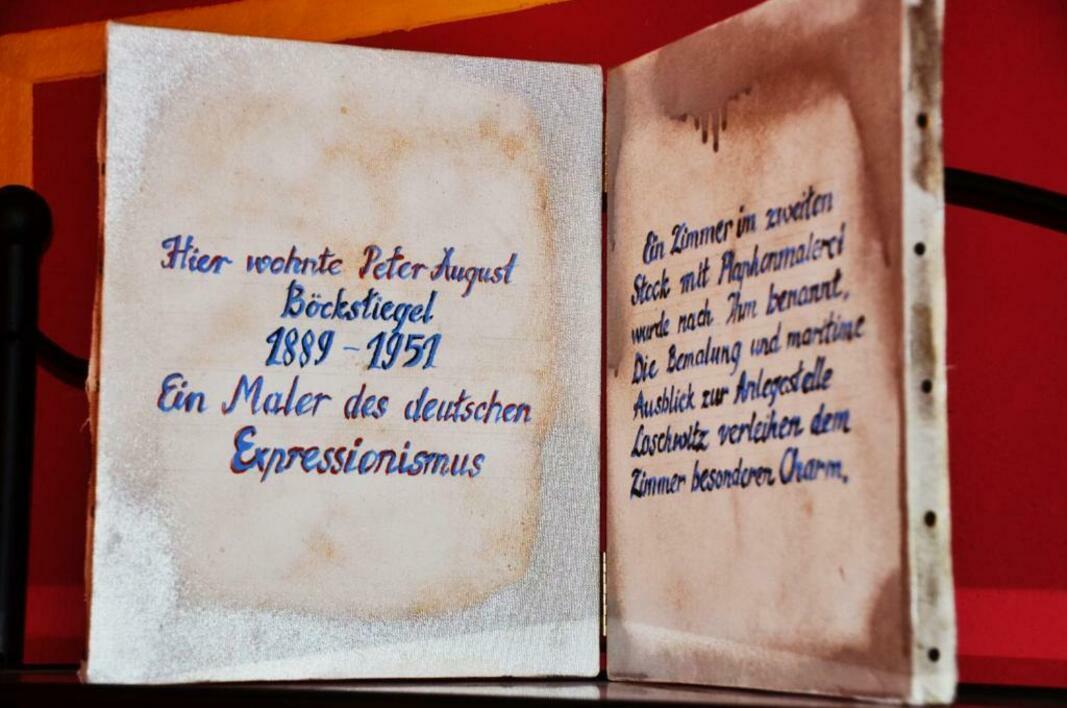 Hier wohnte Peter August
Böckstiegel
1889 - 1951
Ein Maler des deutschen
Expressionismus
Ein Zimmer im zweiten
Stock mit Plaphonmalerei
wurde nach Ihm benannt.
Die Bemalung und maritime
Ausblick zur Anlegestelle
Loschwitz verleihen dem
Zimmer besonderen Charm.